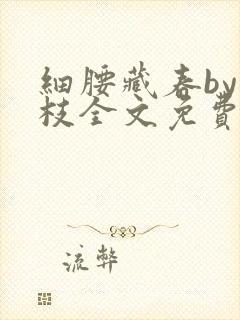 細腰藏春by
枝全文免費
流弊